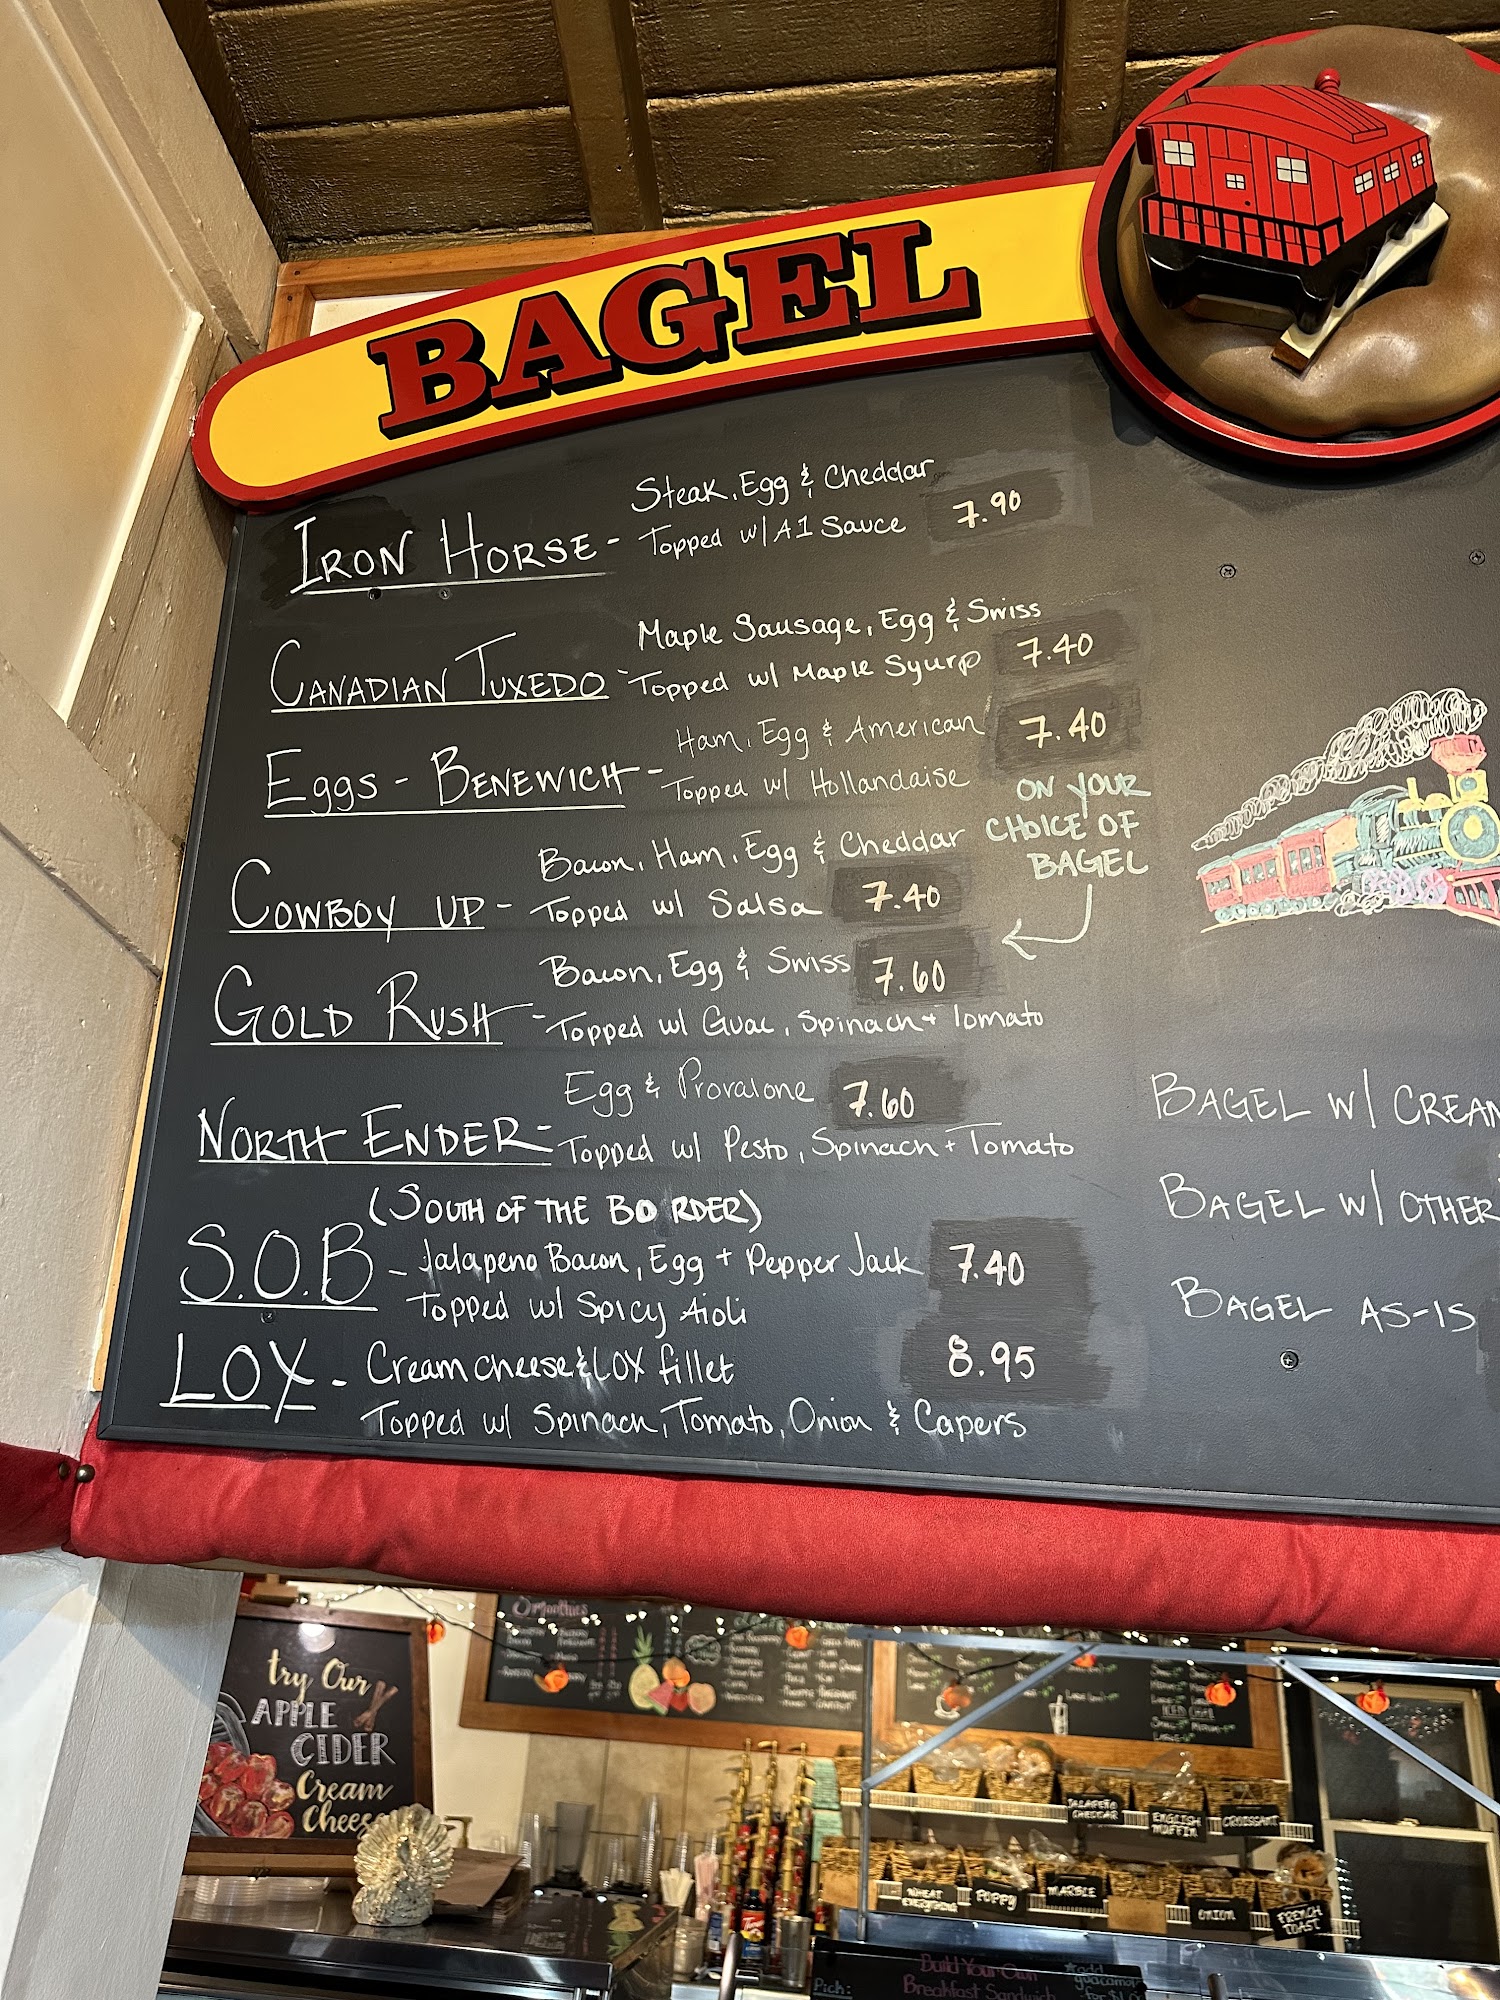 BAGEL
IRON HORSE - Steak, Egg & Cheddar
Topped w/ A1 Sauce 7.90
CANADIAN TUXEDO - Maple Sausage, Egg & Swiss
Topped w/ Maple Syurp 7.40
Eggs - BENEWICH - Ham, Egg & American 7.40
Topped w/ Hollandaise
ON YOUR
CHOICE OF
BAGEL
COWBOY UP - Bacon, Ham, Egg & Cheddar
Topped w/ Salsa 7.40
GOLD RUSH - Bacon, Egg & Swiss 7.60
Topped w/ Guac, Spinach + Tomato
NORTH ENDER - Egg & Provalone 7.60
Topped w/ Pesto, Spinach + Tomato
(SOUTH OF THE BORDER)
S.O.B - Jalapeno Bacon, Egg + Pepper Jack 7.40
Topped w/ Spicy Aioli
LOX - Cream cheese & LOX fillet 8.95
Topped w/ Spinach, Tomato, Onion & Capers
BAGEL W/ CREAM
BAGEL W/ OTHER
BAGEL AS-IS
try Our
APPLE
CIDER
Cream
Cheese
Smoothies
ICED
JALAPEÑO
CHEDDAR
ENGLISH
MUFFIN
CROISSANT
WHEAT
EVERYTHING
POPPY
MARBLE
ONION
FRENCH
TOAST
Build Your Own
Breakfast Sandwich
Pick:
add
guacamole
for $1.